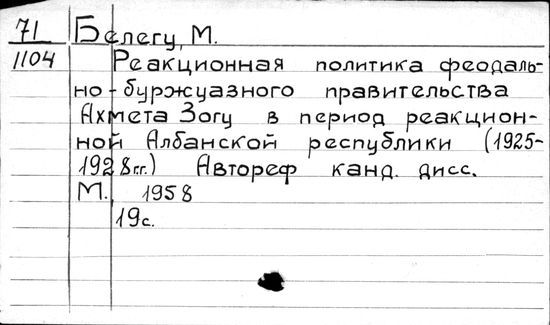 71 Белегу, М.
1104 Реакционная политика феодаль-
но-буржуазного правительства
Ахмета Зогу в период реакцион-
ной Албанской республики (1925-
1928гг.) Автореф канд. дисс.
М., 1958
19с.